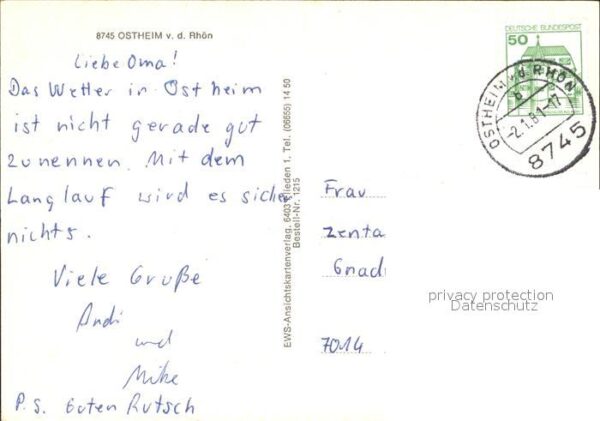 8745 OSTHEIM v. d. Rhön
Liebe Oma!
Das Wetter in Ostheim
ist nicht gerade gut
zunennen. Mit dem
Langlauf wird es sicher
nichts.
Viele Grüße
Andi
und
Mike
P.S. Guten Rutsch
EWS-Ansichtskartenverlag. 6403 Flieden 1, Tel. (06655) 14 50
Bestell-Nr. 1215
DEUTSCHE BUNDESPOST
50
OSTHEIM v.d. RHÖN
-2.1.81-17
8745
Frau
zenta
Gnad
7014
privacy protection
Datenschutz